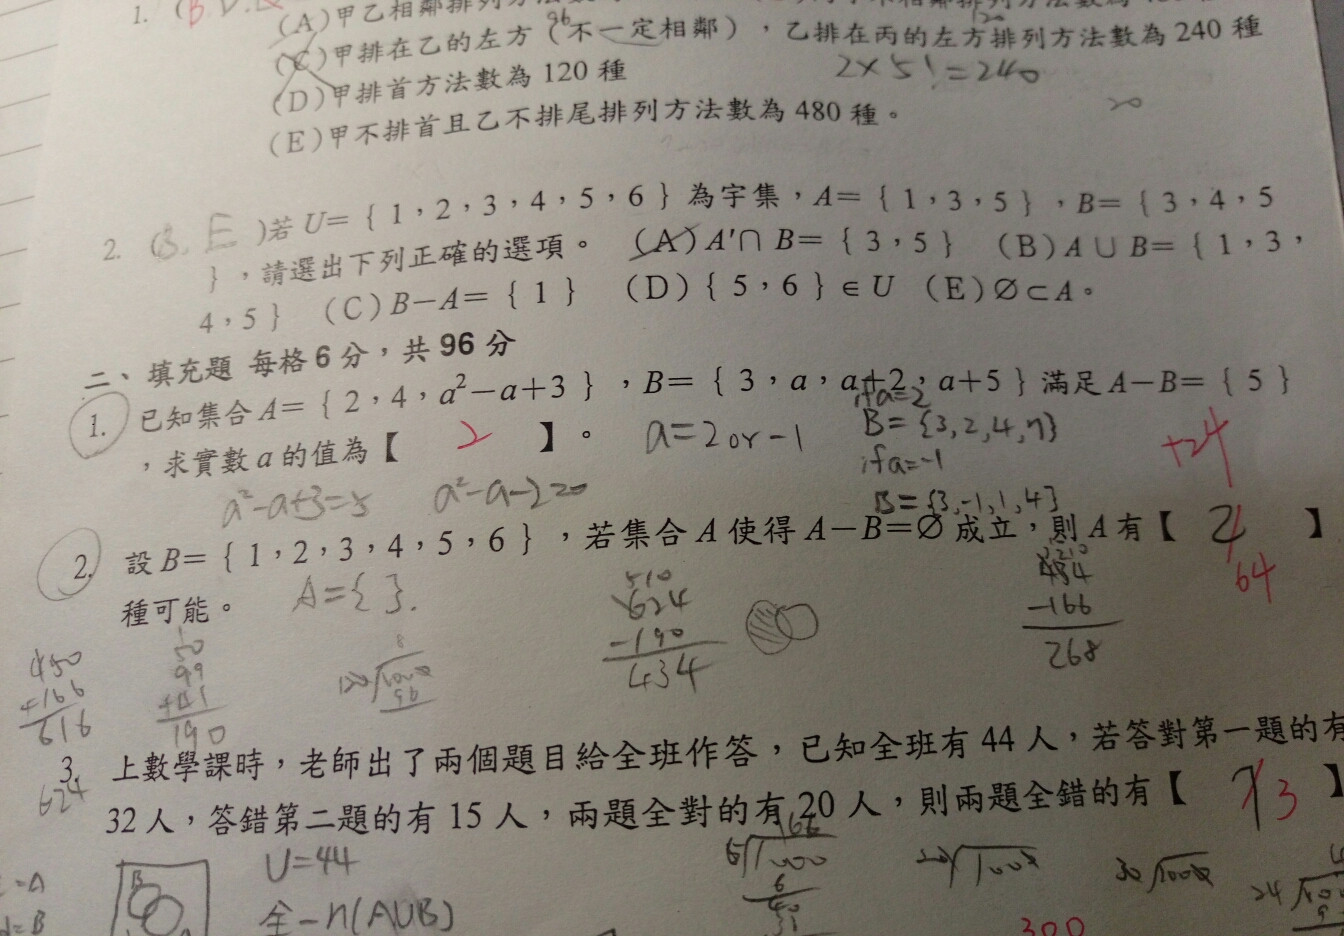 1. (B
(A)甲乙相鄰排列方法
96
120
(C)甲排在乙的左方（不一定相鄰），乙排在丙的左方排列方法數為 240 種
(D)甲排首方法數為 120 種
2×5!=240
20
(E)甲不排首且乙不排尾排列方法數為 480 種。
2. (B. E )若 U=｛1，2，3，4，5，6｝為宇集，A=｛1，3，5｝，B=｛3，4，5
｝，請選出下列正確的選項。 (A)A′∩B=｛3，5｝ (B)A∪B=｛1，3，
4，5｝ (C)B−A=｛1｝ (D)｛5，6｝∈U (E)∅⊂A。
二、填充題 每格 6 分，共 96 分
1. 已知集合 A=｛2，4，a²−a+3｝，B=｛3，a，a+2，a+5｝滿足 A−B=｛5｝
，求實數 a 的值為【 2 】。
a=2 or -1
if a=2
B={3,2,4,7}
if a=-1
B={3,-1,1,4}
+24
a²-a+3=5
a²-a-2=0
2. 設 B=｛1，2，3，4，5，6｝，若集合 A 使得 A−B=∅ 成立，則 A 有【 2 】
64
種可能。
A={ }.
510
624
-190
434
434
-166
268
450
+166
616
50
99
+41
190
624
3. 上數學課時，老師出了兩個題目給全班作答，已知全班有 44 人，若答對第一題的有
32 人，答錯第二題的有 15 人，兩題全對的有 20 人，則兩題全錯的有【 7 3 】
U=44
全-n(AUB)
166
6 1000
6
40
=A
=B
B
300